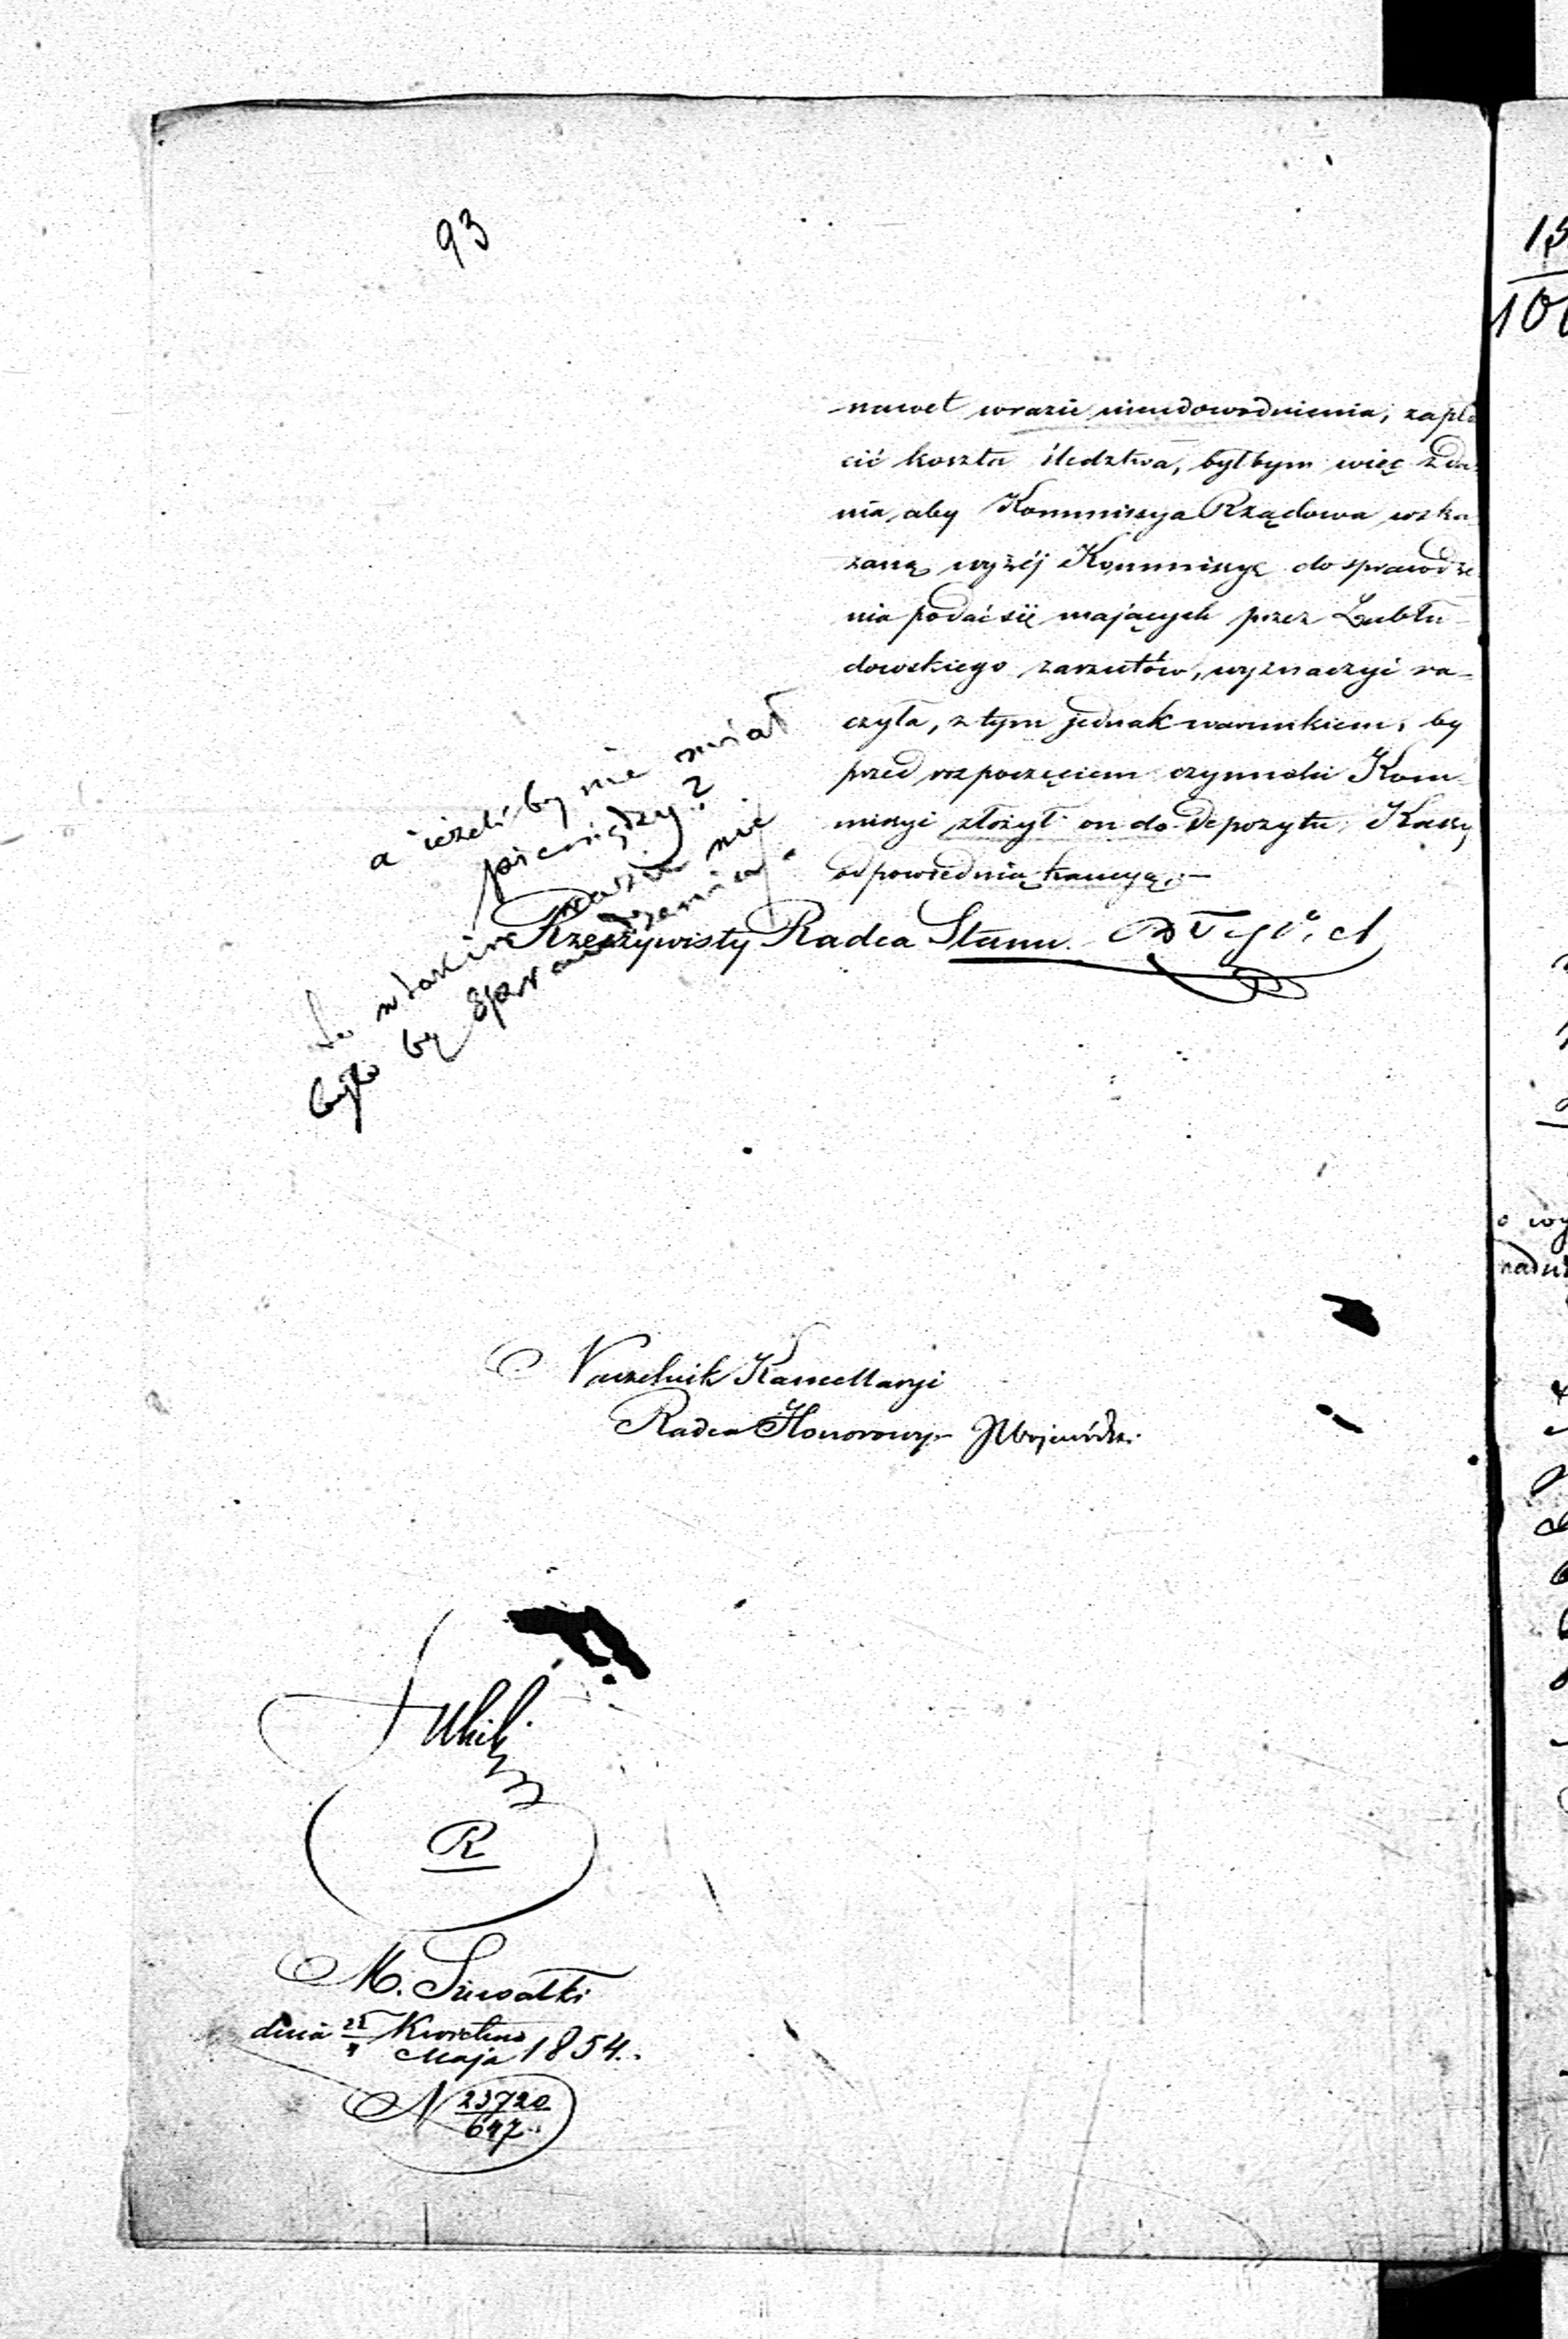 93
nawet wrazie nieudowodnienia, zapła
cić koszta śledztwa, byłbym więc zda
nia, aby Kommissya Rządowa wska
zaną wyżéj Kommissyę do sprawdze
nia podać się mających przez Zabłu
dowskiego zarzutów, wyznaczyć ra-
czyła, z tym jednak warunkiem, by
przed rozpoczęciem czynności Kom
missyi złożył on do Depozytu Kassy
odpowiednią kaucyą.—
a ieżeli by nie miał
pieniędzy?
to w takim razie nie
było by sprawdzenia.
Rzeczywisty Radca Stanu
Naczelnik Kancellaryi
Radca Honorowy
R
M. Suwałki
dnia Kwietnia
Maja 1854.
N 23720
647